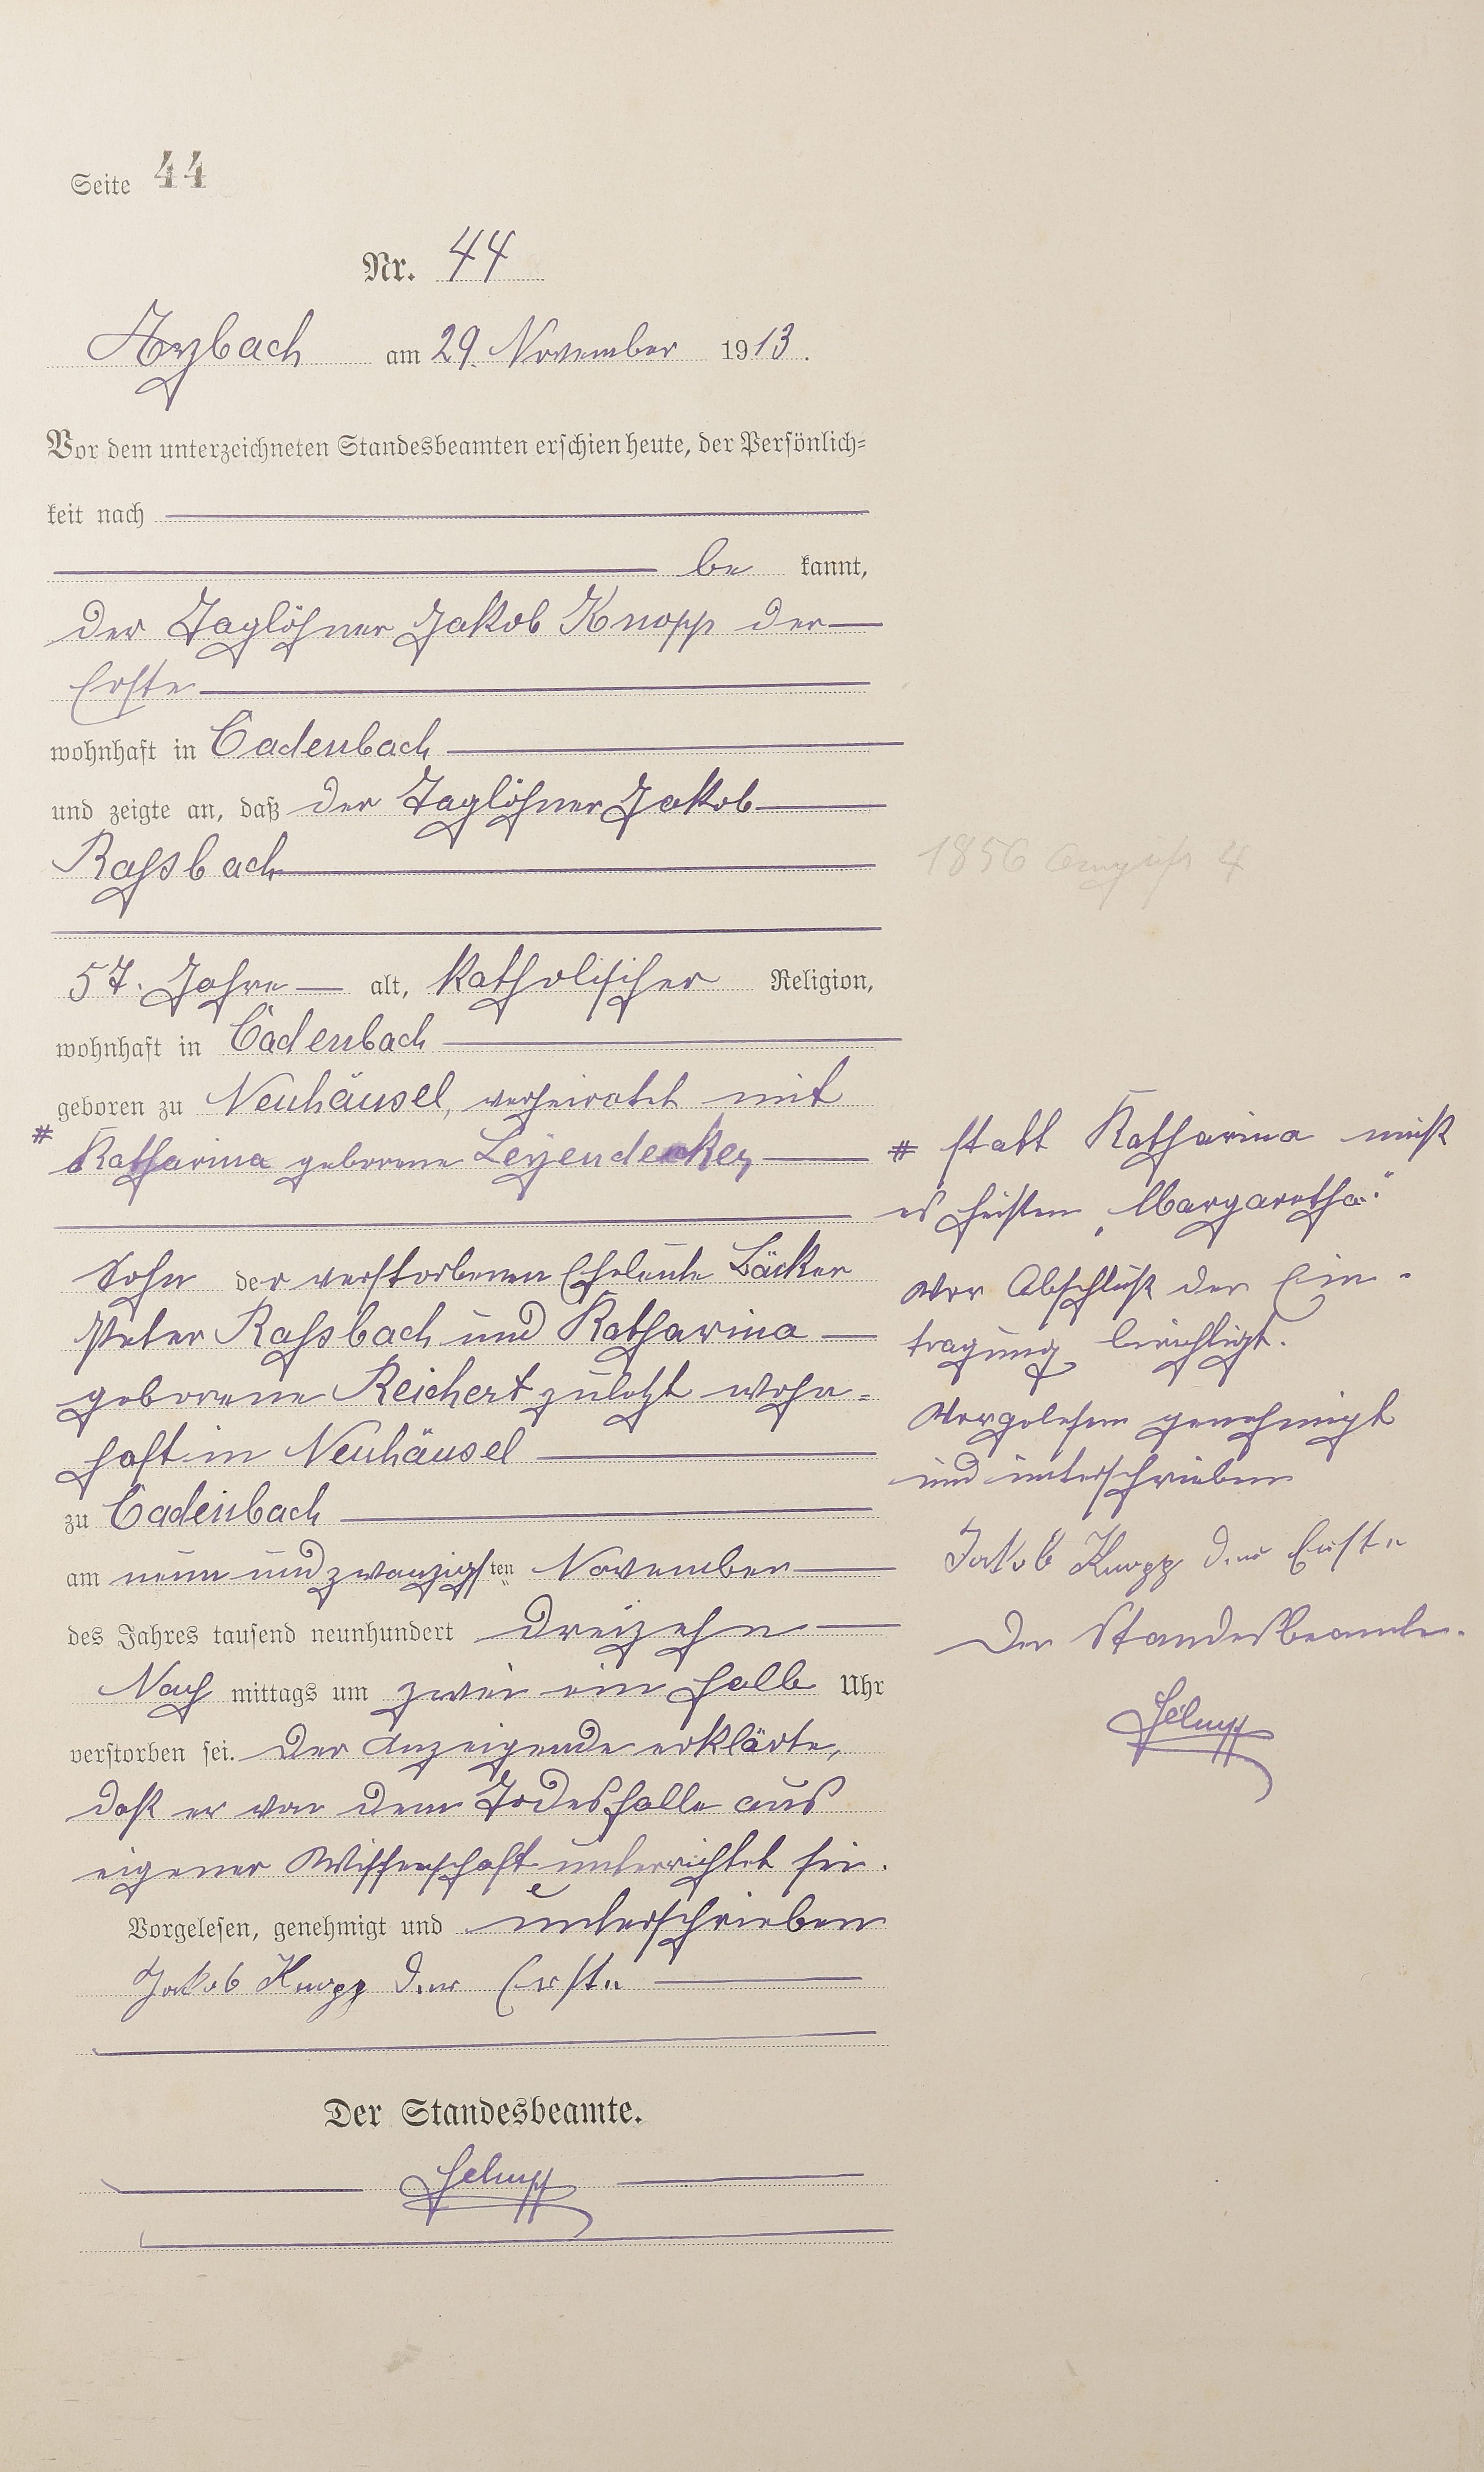 Seite 44
Nr. 44
Arzbach am 29. November 1913.
Vor dem unterzeichneten Standesbeamten erschien heute, der Persönlich-
keit nach
be kannt,
der Taglöhner Jakob Knopp der
Erste
wohnhaft in Cadenbach
und zeigte an, daß der Taglöhner Jakob
Raßbach
1856 August 4
57 Jahre alt, katholischer Religion,
wohnhaft in Cadenbach
geboren zu Neuhäusel, verheiratet mit
# Katharina geborene Leyendecker
Sohn der verstorbenen Eheleute Bäcker
Peter Raßbach und Katharina
geborene Reichert zuletzt wohn-
haft in Neuhäusel
zu Cadenbach
am neun und zwanzigsten November
des Jahres tausend neunhundert dreizehn
Nach mittags um zwei ein halb Uhr
verstorben sei. Der Anzeigende erklärte,
daß er von dem Todesfalle aus
eigener Wissenschaft unterrichtet sei.
Vorgelesen, genehmigt und unterschrieben
Jakob Knopp der Erste
Der Standesbeamte.
# statt Katharina muß
es heißen „Margaretha“.
Vor Abschluß der Ein-
tragung berichtigt.
Vorgelesen genehmigt
und unterschrieben
Jakob Knopp der Erste
Der Standesbeamte.